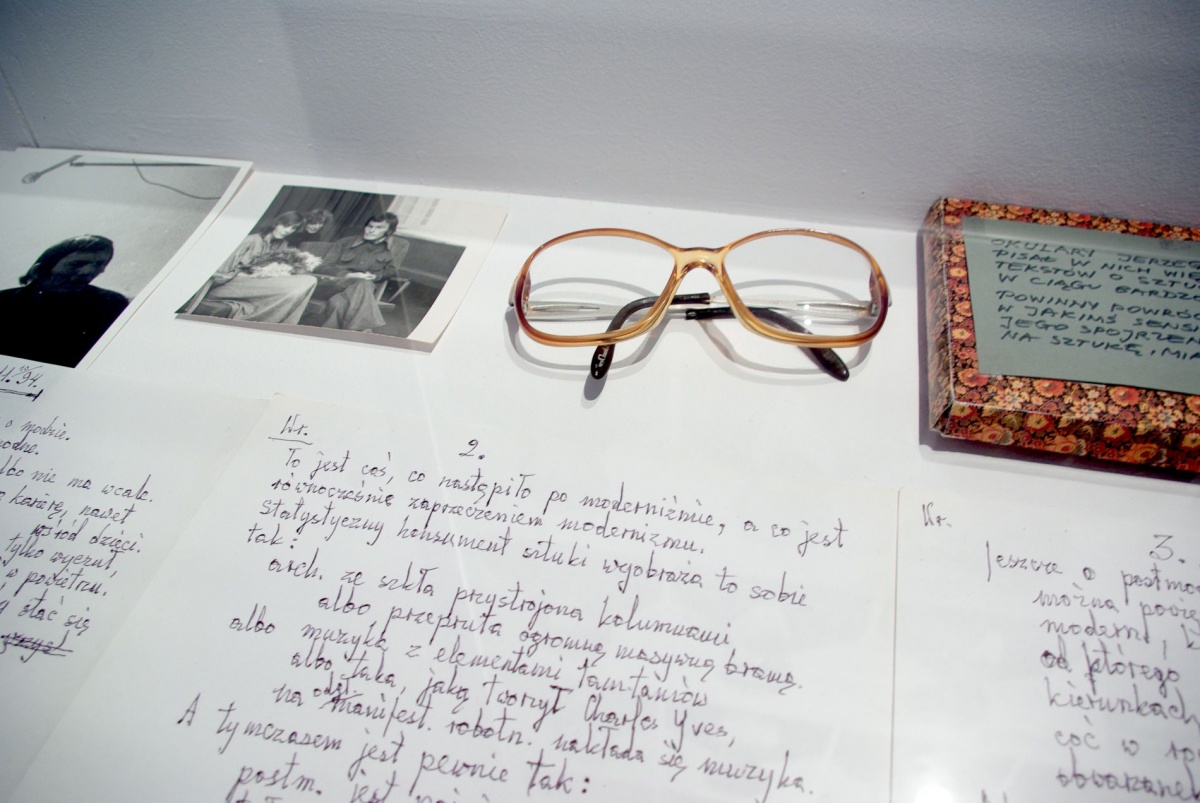 OKULARY JERZEG
PISAŁ W NICH WIĘ
TEKSTÓW O SZTU
W CIĄGU BARDZO
POWINNY POWRÓ
W JAKIMŚ SENSI
JEGO SPOJRZEN
NA SZTUKĘ, MIA
94.
o modzie.
albo nie ma wcale.
karierę, nawet
wśród dzieci.
tylko wyczuł,
w powietrzu.
stać się
Nr.
2.
To jest coś, co nastąpiło po moderniźmie, a co jest
równocześnie zaprzeczeniem modernizmu.
Statystyczny konsument sztuki wyobraża to sobie
tak:
arch. ze szkła przystrojona kolumnami
albo przepruta ogromną masywną bramą.
albo muzyka z elementami tamtamów
albo taka, jaką tworzył Charles Yves,
na odgł. manifest. robotn. nakłada się muzyka.
A tymczasem jest pewnie tak:
postm. jest
Nr.
3.
Jeszcze o postmo
można powie
modern., k
od którego
kierunkach
coć w
obwarzanek